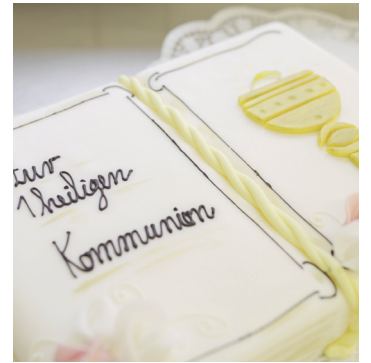 zur
1. heiligen
Kommunion